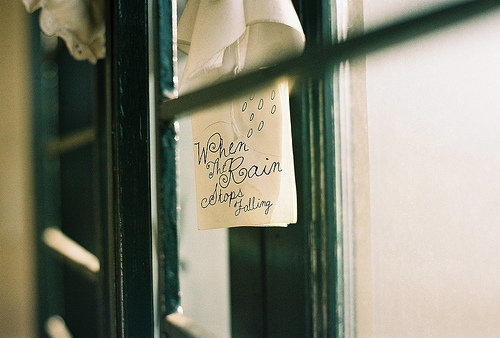 When
The Rain
Stops
Falling